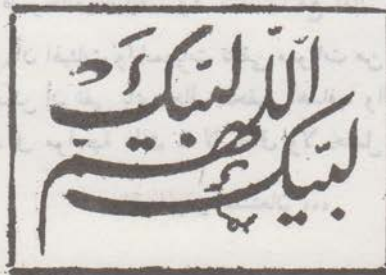 لبّيك اللّهمّ لبّيك